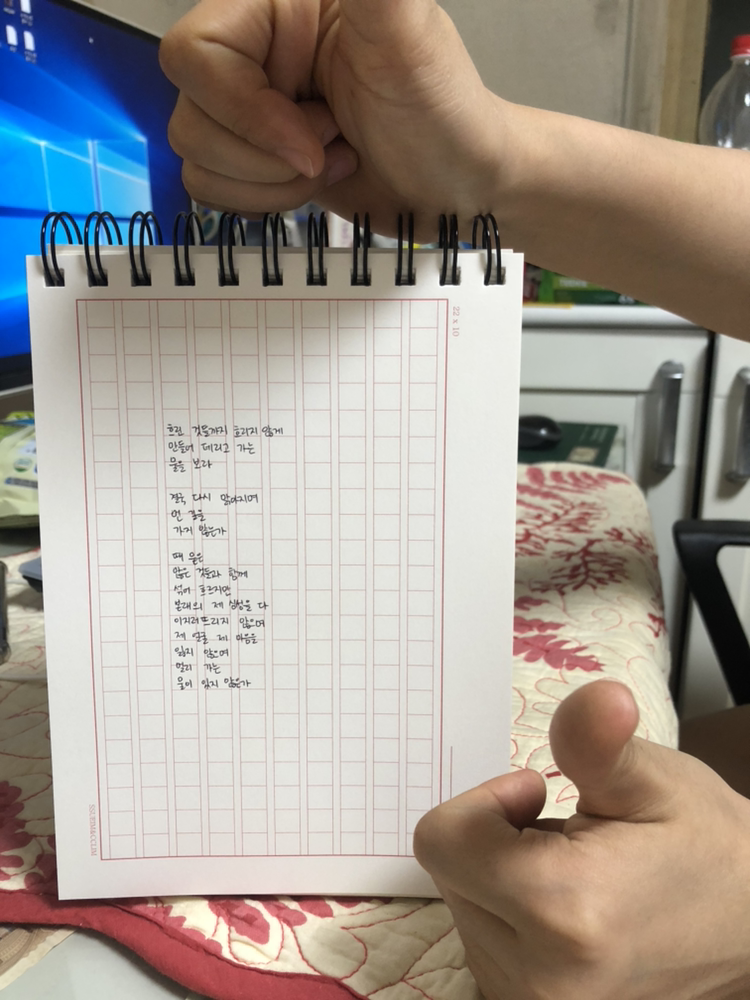 흐린 것들까지 흐리지 않게
만들어 데리고 가는
물을 보라
결국 다시 맑아지며
먼 길을
가지 않는가
때 묻은
많은 것들과 함께
섞여 흐르지만
본래의 제 심성을 다
이지러뜨리지 않으며
제 얼굴 제 마음을
잃지 않으며
멀리 가는
물이 있지 않은가
22 x 10
SSUEIM&CCLIM